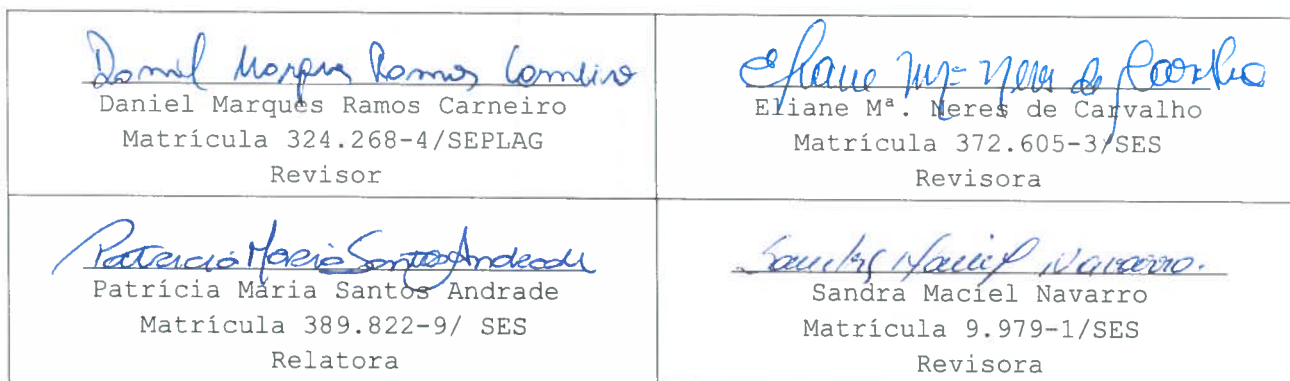 Daniel Marques Ramos Carneiro
Daniel Marques Ramos Carneiro
Matrícula 324.268-4/SEPLAG
Revisor
Eliane Mª Neres de Carvalho
Eliane Mª. Neres de Carvalho
Matrícula 372.605-3/SES
Revisora
Patrícia Maria Santos Andrade
Patrícia Maria Santos Andrade
Matrícula 389.822-9/ SES
Relatora
Sandra Maciel Navarro.
Sandra Maciel Navarro
Matrícula 9.979-1/SES
Revisora